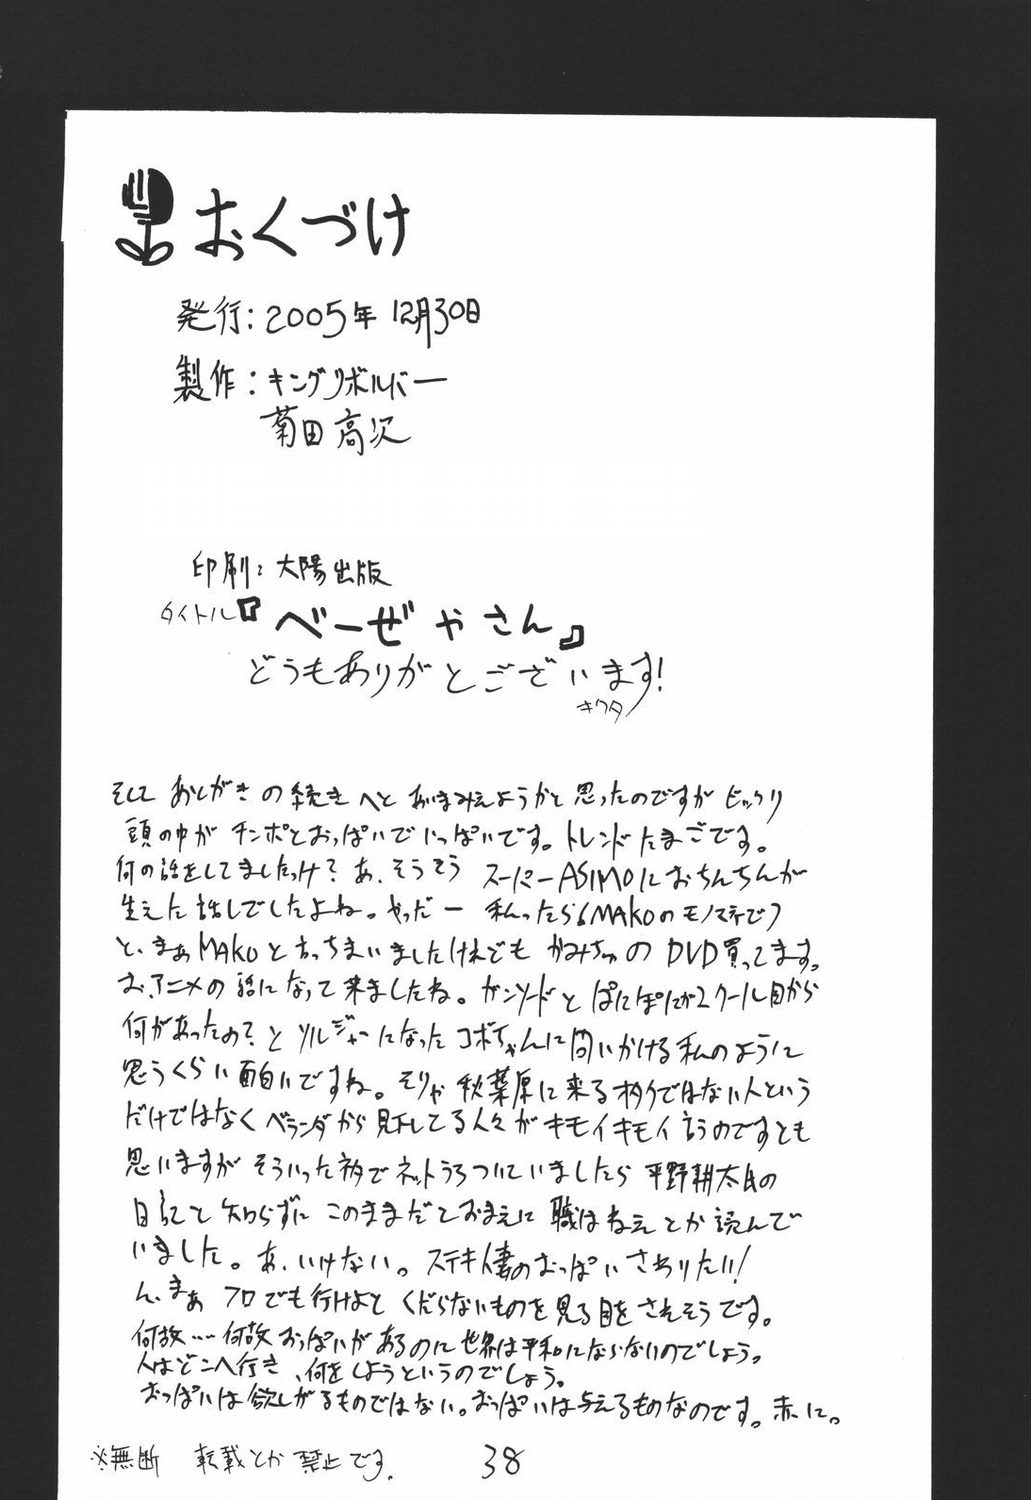 おくづけ
発行：2005年 12月30日
製作：キングリボルバー
菊田 高次
印刷：大陽出版
タイトル『べーぜ やさん』
どうもありがとございます！
キクタ
そして あとがきの続きへと あいまみえようかと思ったのですが ビックリ
頭の中が チンポとおっぱいでいっぱいです。トレンドたまごです。
何の話をしてましたっけ？あ、そうそう スーパーASIMOにおちんちんが
生えた話しでしたよね。やっだー 私ったら
と、まぁMAKOと言っちまいましたけれども かみちゅのDVD買ってます。
お、アニメの話になって来ましたね。ガンソードと ぱにぽにが2クール目から
何があったの？と ソルジャーになった コボちゃんに問いかける私のように
思うくらい面白いですね。そりゃ 秋葉原に来るオタクではない人という
だけではなくベランダから見下してる人々がキモイキモイ言うのですとも
思いますが そういった でネットうろついていましたら 平野耕太氏の
日記と知らずに このままだとおまえに 職はねぇ とか読んで
いました。あ、いけない。ステキ人妻のおっぱいさわりたい！
ん、まぁ フロでも行けよと くだらないものを見る目をされそうです。
何故…何故おっぱいがあるのに世界は平和にならないのでしょう。
人はどこへ行き、何をしようというのでしょう。
おっぱいは欲しがるものではない。おっぱいは与えるものなのです。赤に。
※無断 転載とか禁止です.
38